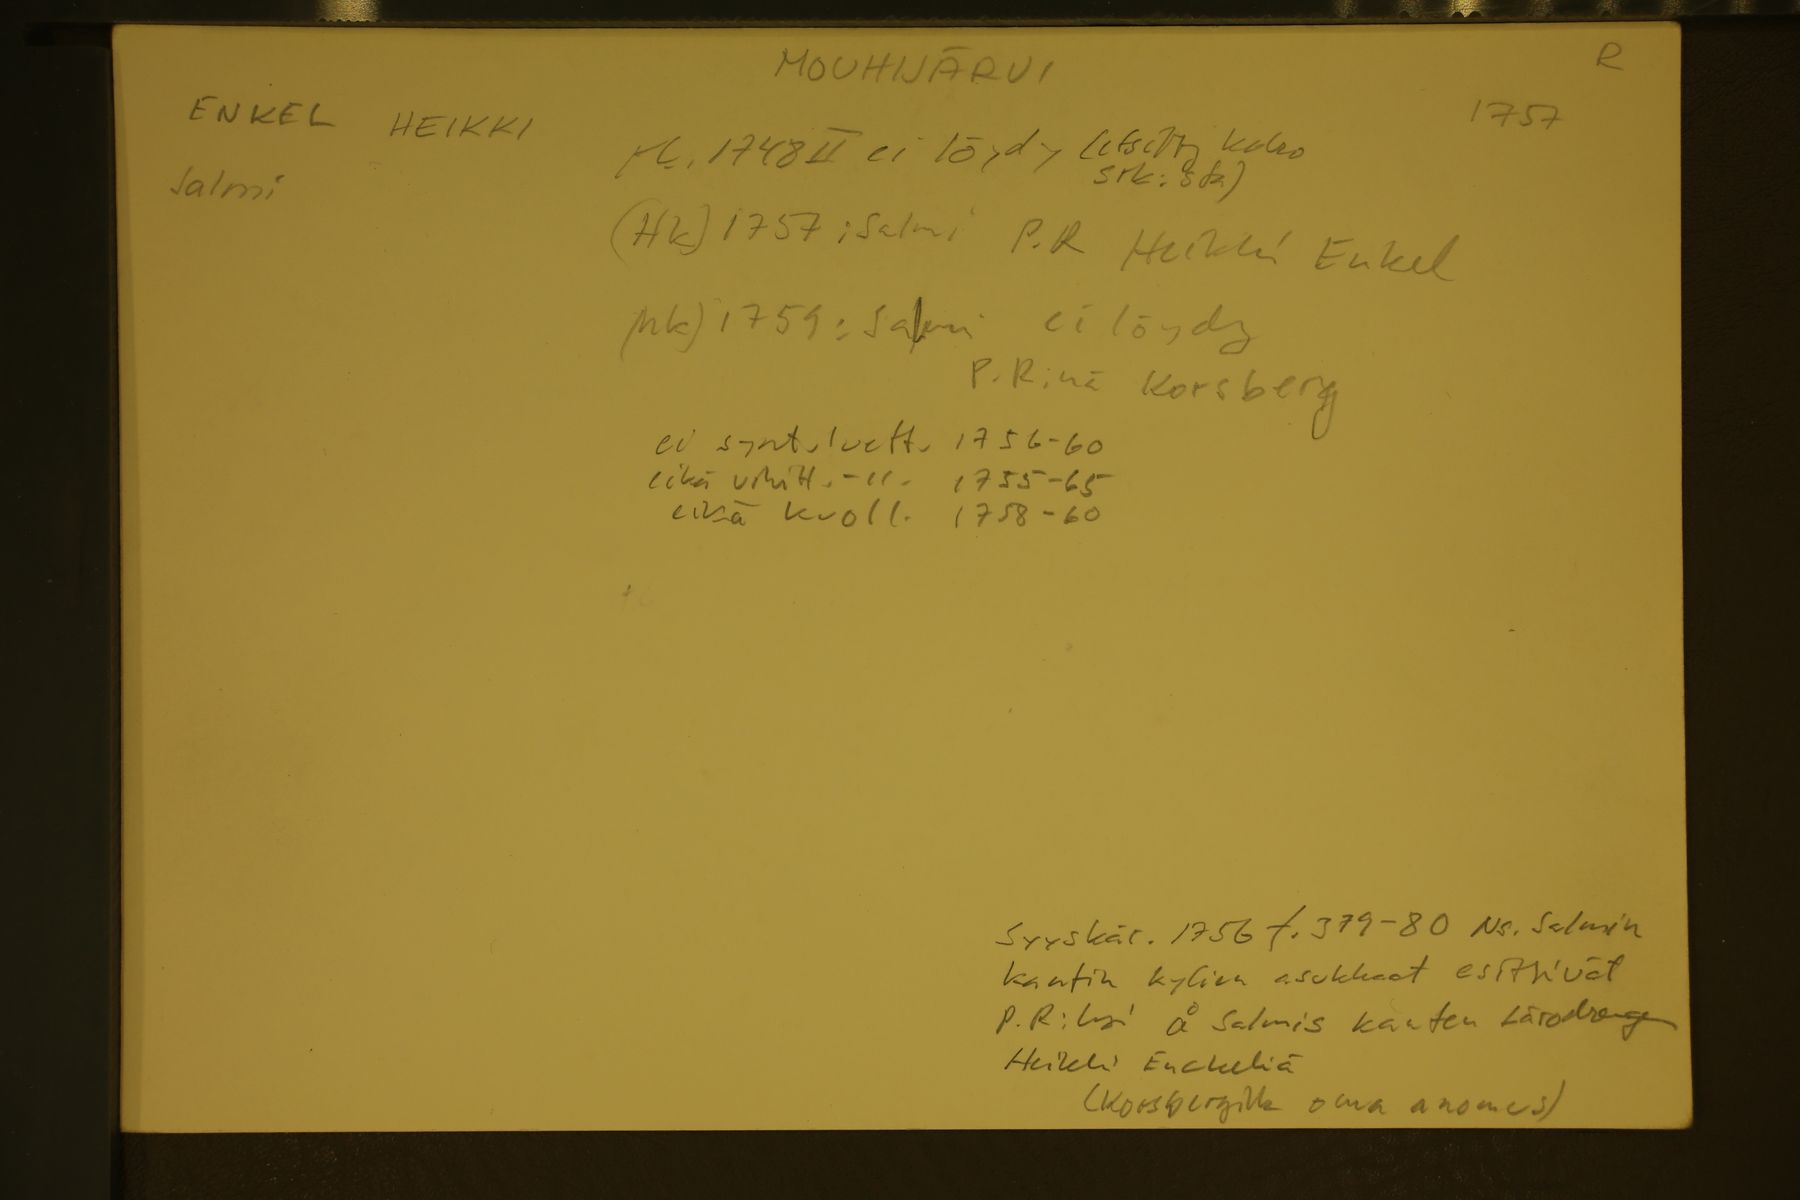 MOUHIJÄRVI
R
ENKEL HEIKKI
1757
Salmi
rk. 1748 II ei löydy (etsitty koko
srk:sta)
(Hk) 1757: Salmi P.R Heikki Enkel
(hk) 1759: Salmi ei löydy
P.R:nä Korsberg
ei synt. luett. 1756-60
eikä vihitt. -"- 1755-65
eikä kuoll. 1758-60
Syyskär. 1756 f. 379-80 Ns. Salmin
kantin kylien asukkaat esittivät
P.R:ksi å Salmis kanten Lärodrengen
Heikki Enckeliä
(Korsbergilla oma anomus)